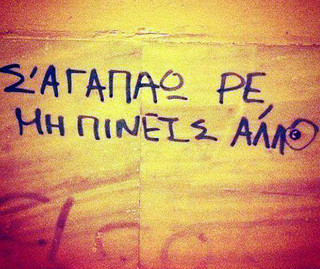 Σ'ΑΓΑΠΑΩ ΡΕ,
ΜΗ ΠΙΝΕΙΣ ΆΛΛΟ